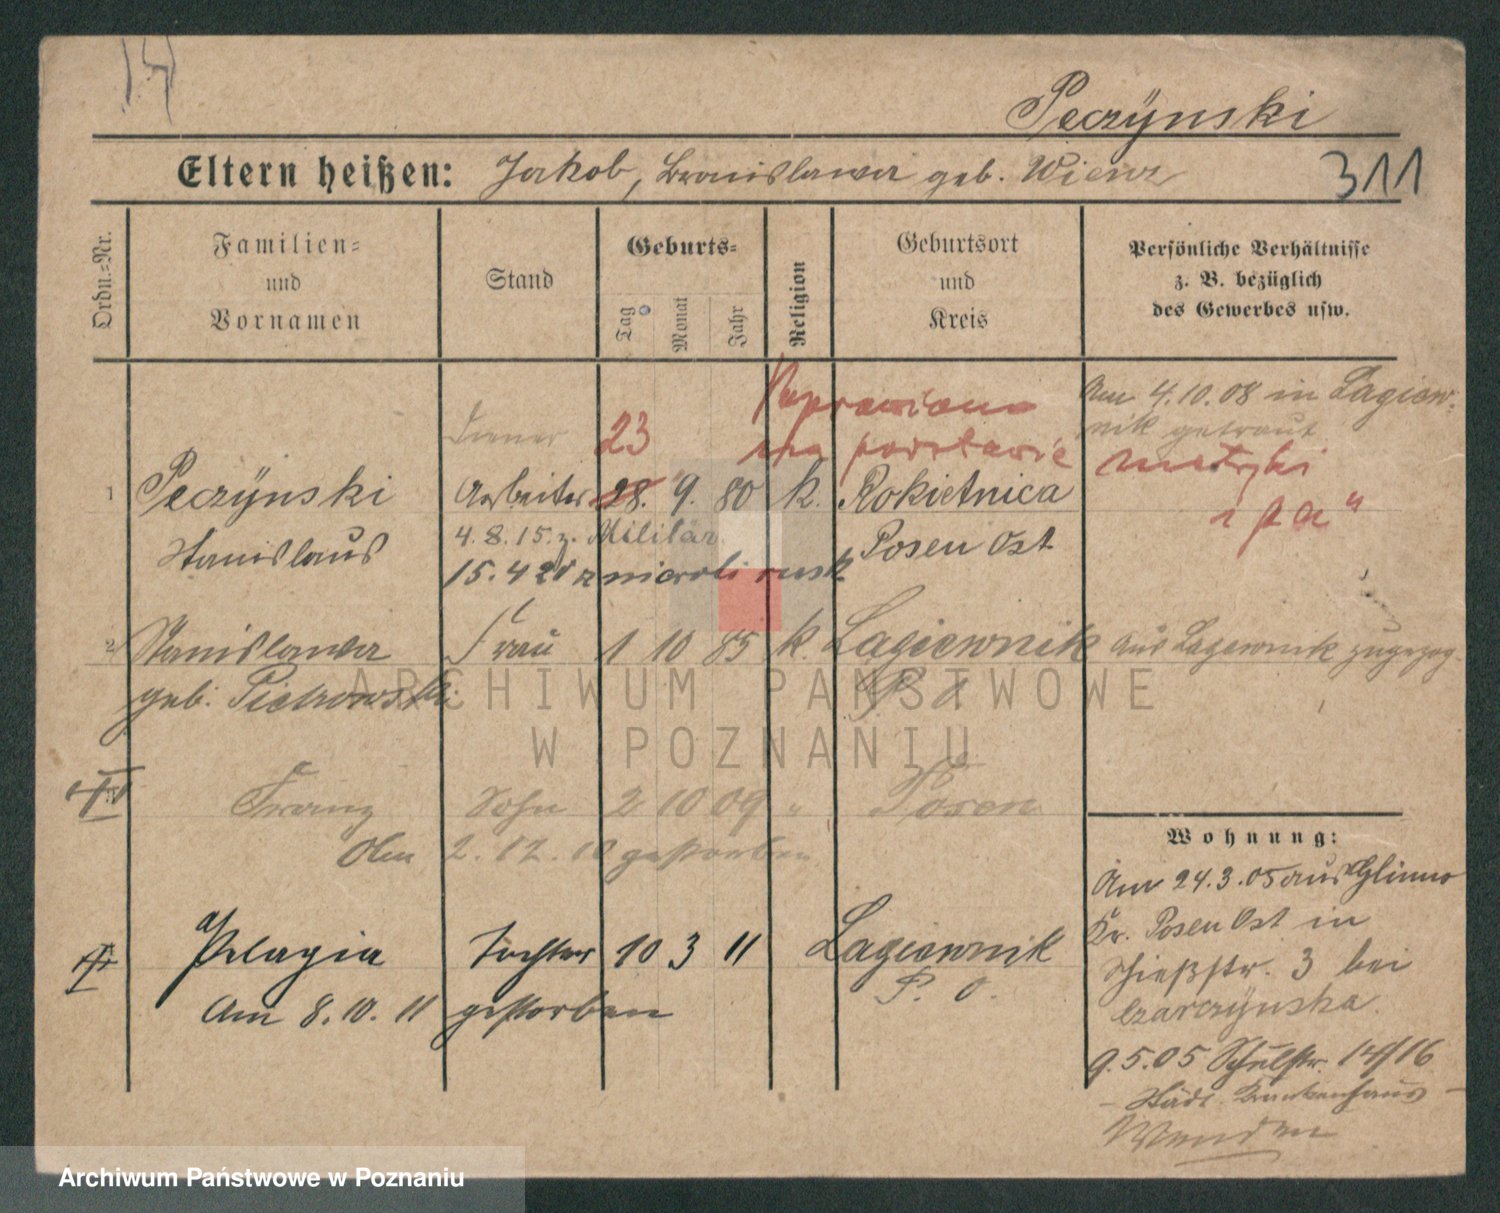 Peczÿnski
Eltern heißen: Jakob, Bronislawa geb. Wienz
311
Ordn.=Nr.
Familien=
und
Vornamen
Stand
Geburts=
Tag
Monat
Jahr
Religion
Geburtsort
und
Kreis
Persönliche Verhältnisse
z. B. bezüglich
des Gewerbes usw.
Diener 23 Poprawiono Am 4.10.08 in Lagiew=
nik getraut
na podstawie metryki
1 Peczÿnski Arbeiter 28. 9. 80 k. Rokietnica
"
Stanislaus 4.8.15. z. Militär Posen Ost
15.4 20 z rusk
2 Stanislawa Frau 1 10 85 k. Lagiewnik aus Lagiewnik zugezog.
geb. Pietrowski P. O
ARCHIWUM PAŃSTWOWE
W POZNANIU
Franz Sohn 2 10 09 " Posen
Am 2.12.10 gestorben
Wohnung:
Am 24.3.05 aus Glinno
Kr. Posen Ost in
Schießstr. 3 bei
Czarczÿnska.
Pelagia Tochter 10 3 11 Lagiewnik
P. O.
Am 8.10.11 gestorben
9.5.05 Schulstr. 14/16
– Städt. Krankenhaus –
Archiwum Państwowe w Poznaniu